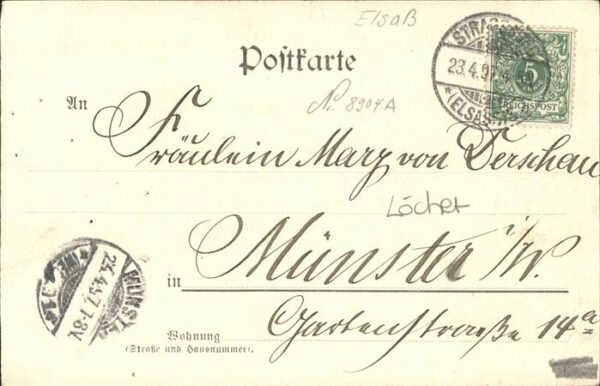 Elsaß
STRASSB
23.4.97
(ELSASS)
5
REICHSPOST
Postkarte
N. 8904A
An
Fräulein Mary von Derschau
Löcher
Münster i/W.
in
Gartenstraße 14a
Wohnung
(Straße und Hausnummer).
MÜNSTER
24.4.97.7-8V.